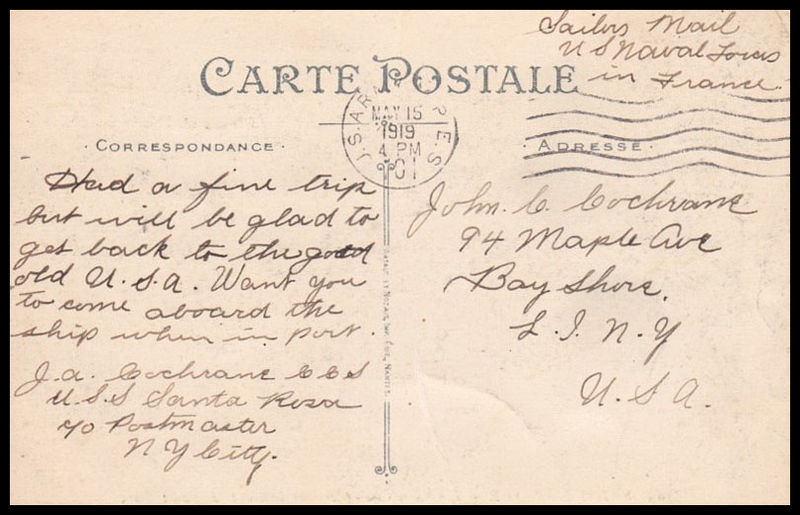 Sailors Mail
U S Naval Forces
in France
CARTE POSTALE
MAY 15
1919
4 PM
· CORRESPONDANCE ·
· ADRESSE ·
Had a fine trip
but will be glad to
get back to the good
old U.S.A. Want you
to come aboard the
ship when in port.
J. A. Cochrane C C S
U.S.S Santa Rosa
c/o Postmaster
N Y City.
John. C. Cochrane
94 Maple Ave
Bay Shore.
L. I. N. Y
U. S A.